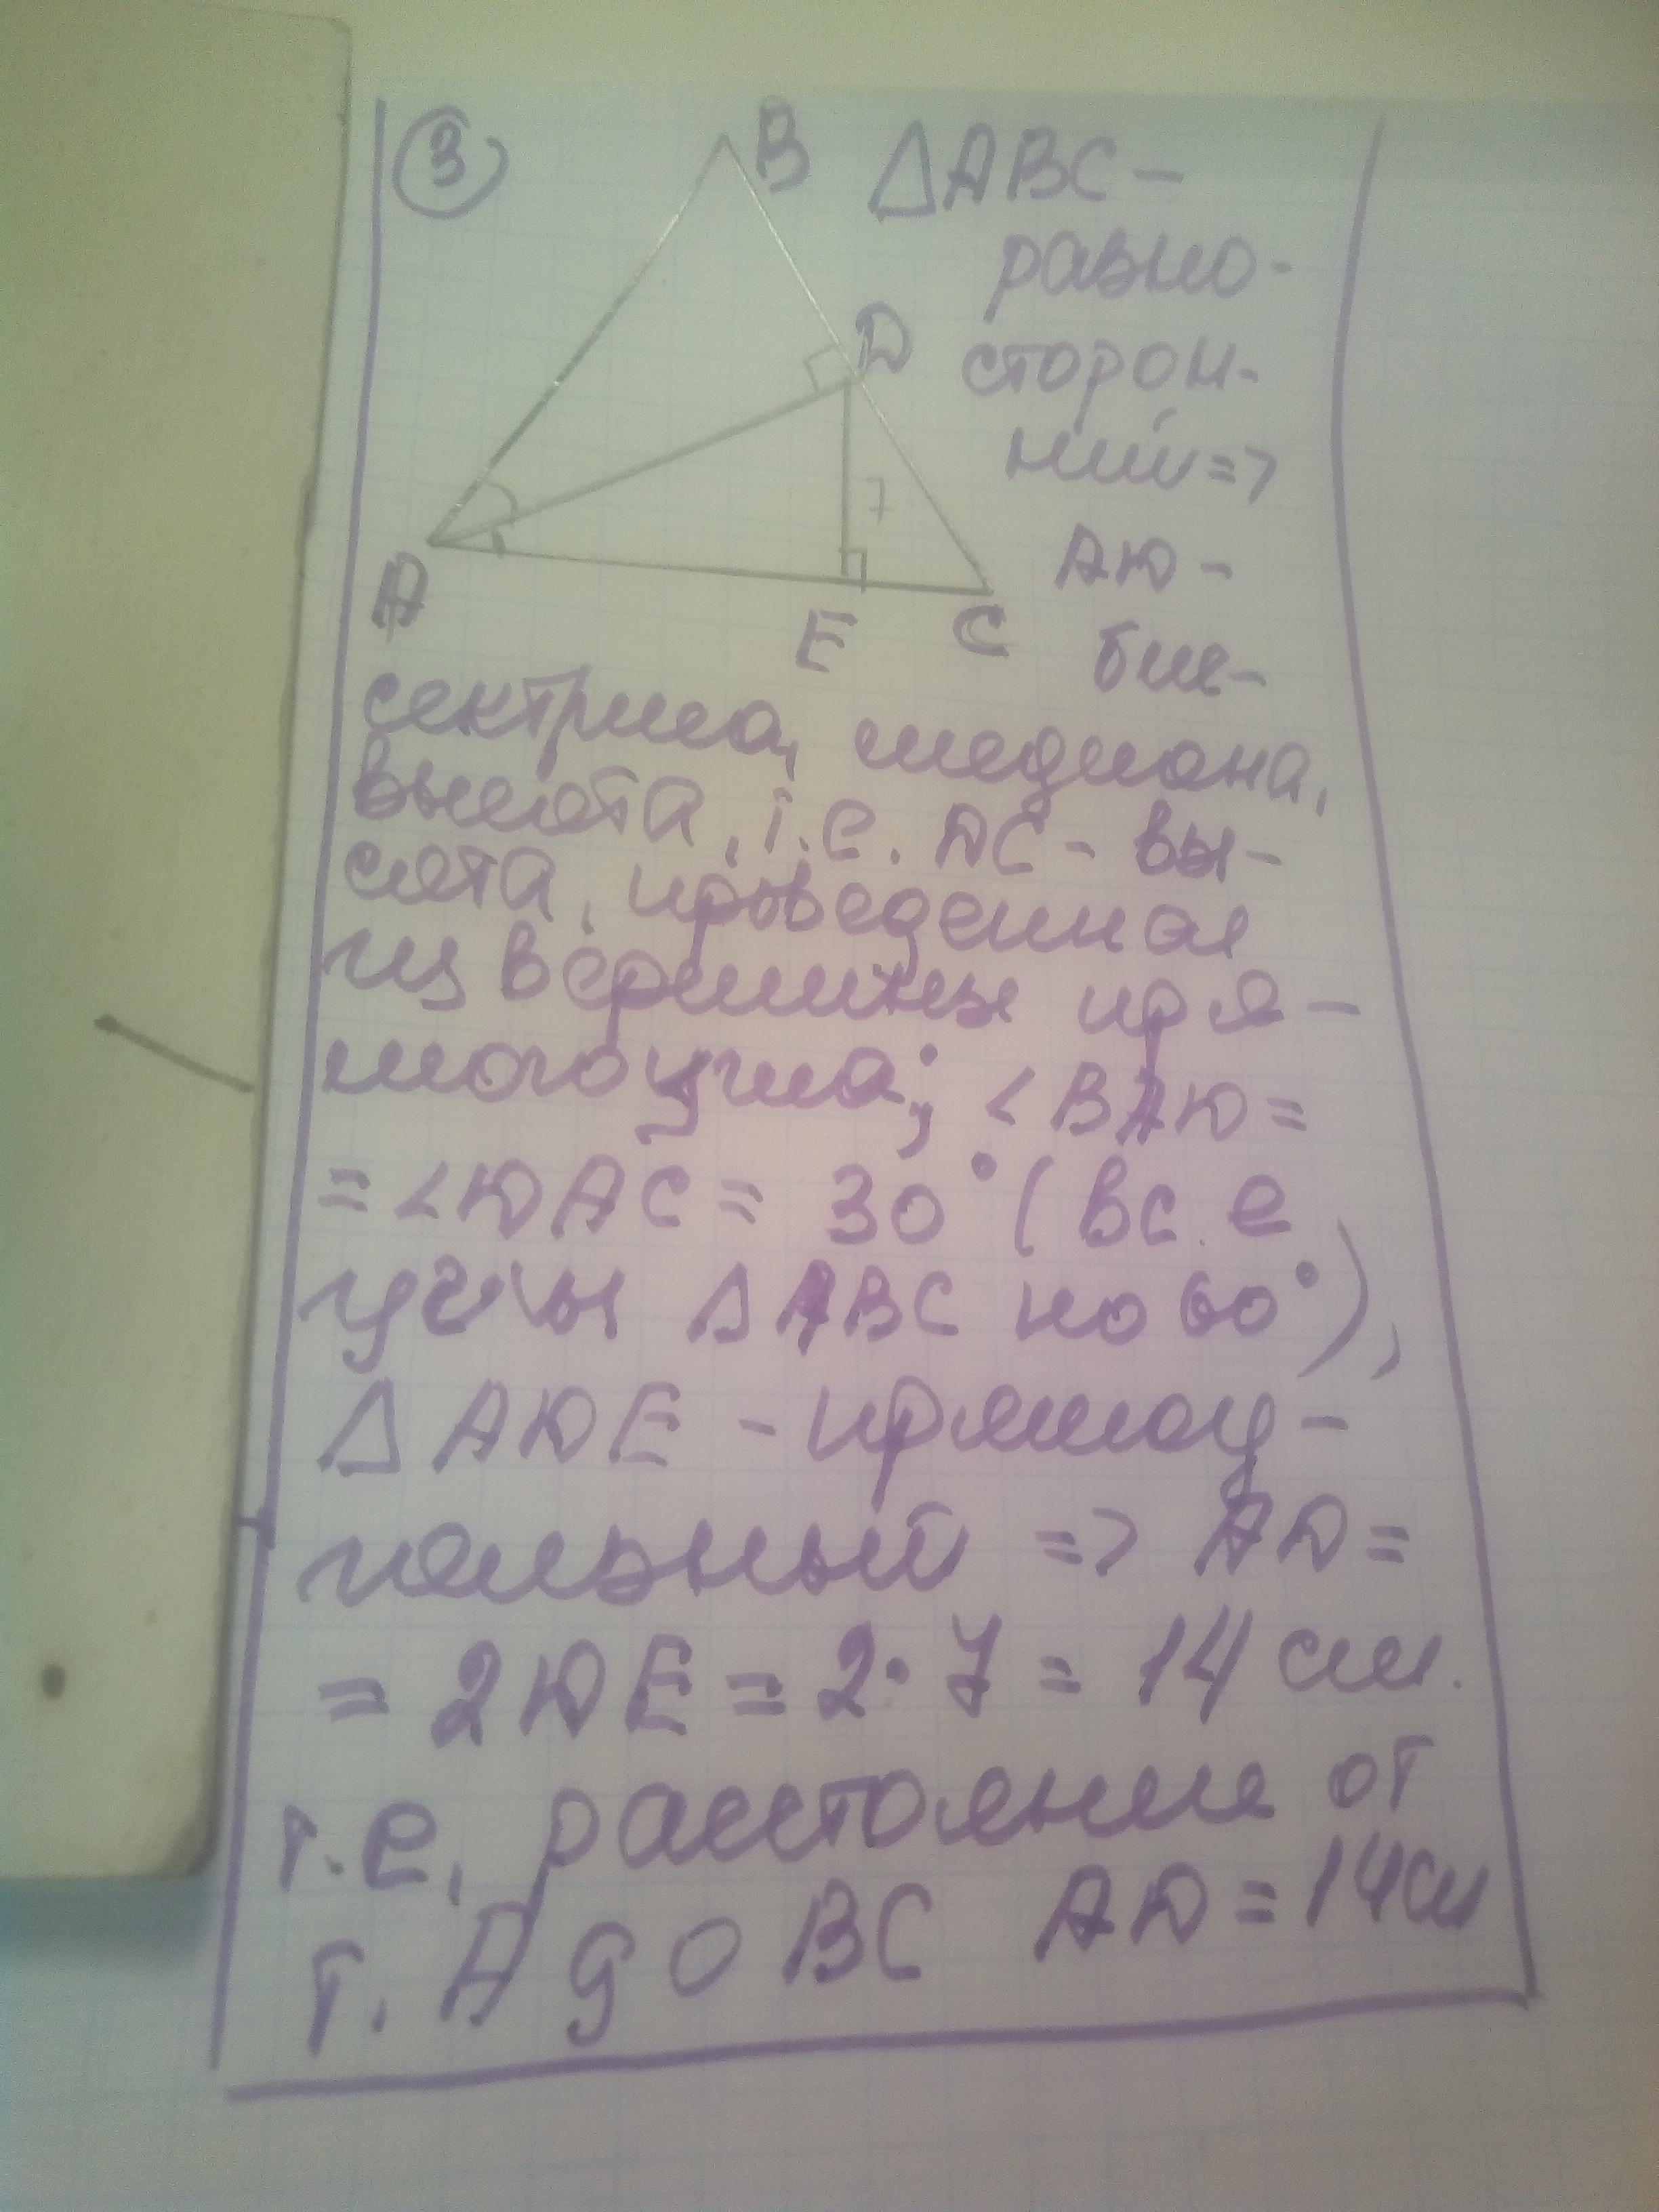 3 B ΔABC –
равно-
D сторон-
ний =>
7
AD –
A E C бис-
сектриса, медиана,
высота, т.е. DC – вы-
сота, проведенная
из вершины пря-
мого угла; <BAD =
= <DAC = 30° (все
углы ΔABC по 60°),
ΔADE – прямоу-
гольный => AD =
= 2DE = 2·7 = 14 см.
т.е. расстояние от
т. A до BC AD = 14 см